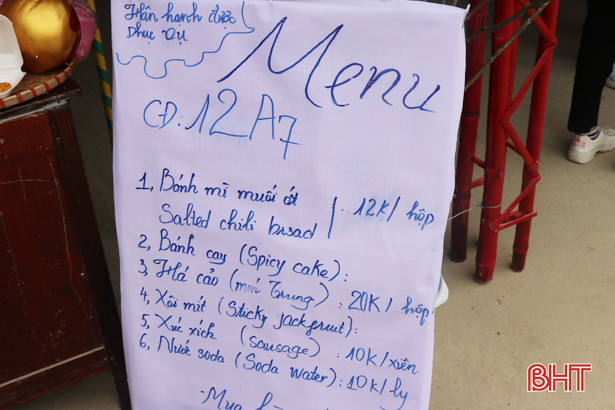 Hân hạnh được
phục vụ
Menu
CĐ: 12A7
1, Bánh mì muối ớt
Salted chili bread | : 12K/ hộp
2, Bánh cay (Spicy cake) :
3, Há cảo (món Trung) : 20K / hộp
4, Xôi mít (Sticky jackfruit) :
5, Xúc xích (sausage) : 10K/xiên
6, Nước soda (Soda water) : 10K/ly
- Mua
BHT